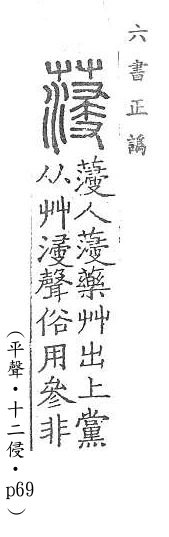 六書正譌
薓
薓人薓藥艸出上黨
从艸𣹰聲俗用參非
（平聲．十二侵．p69）